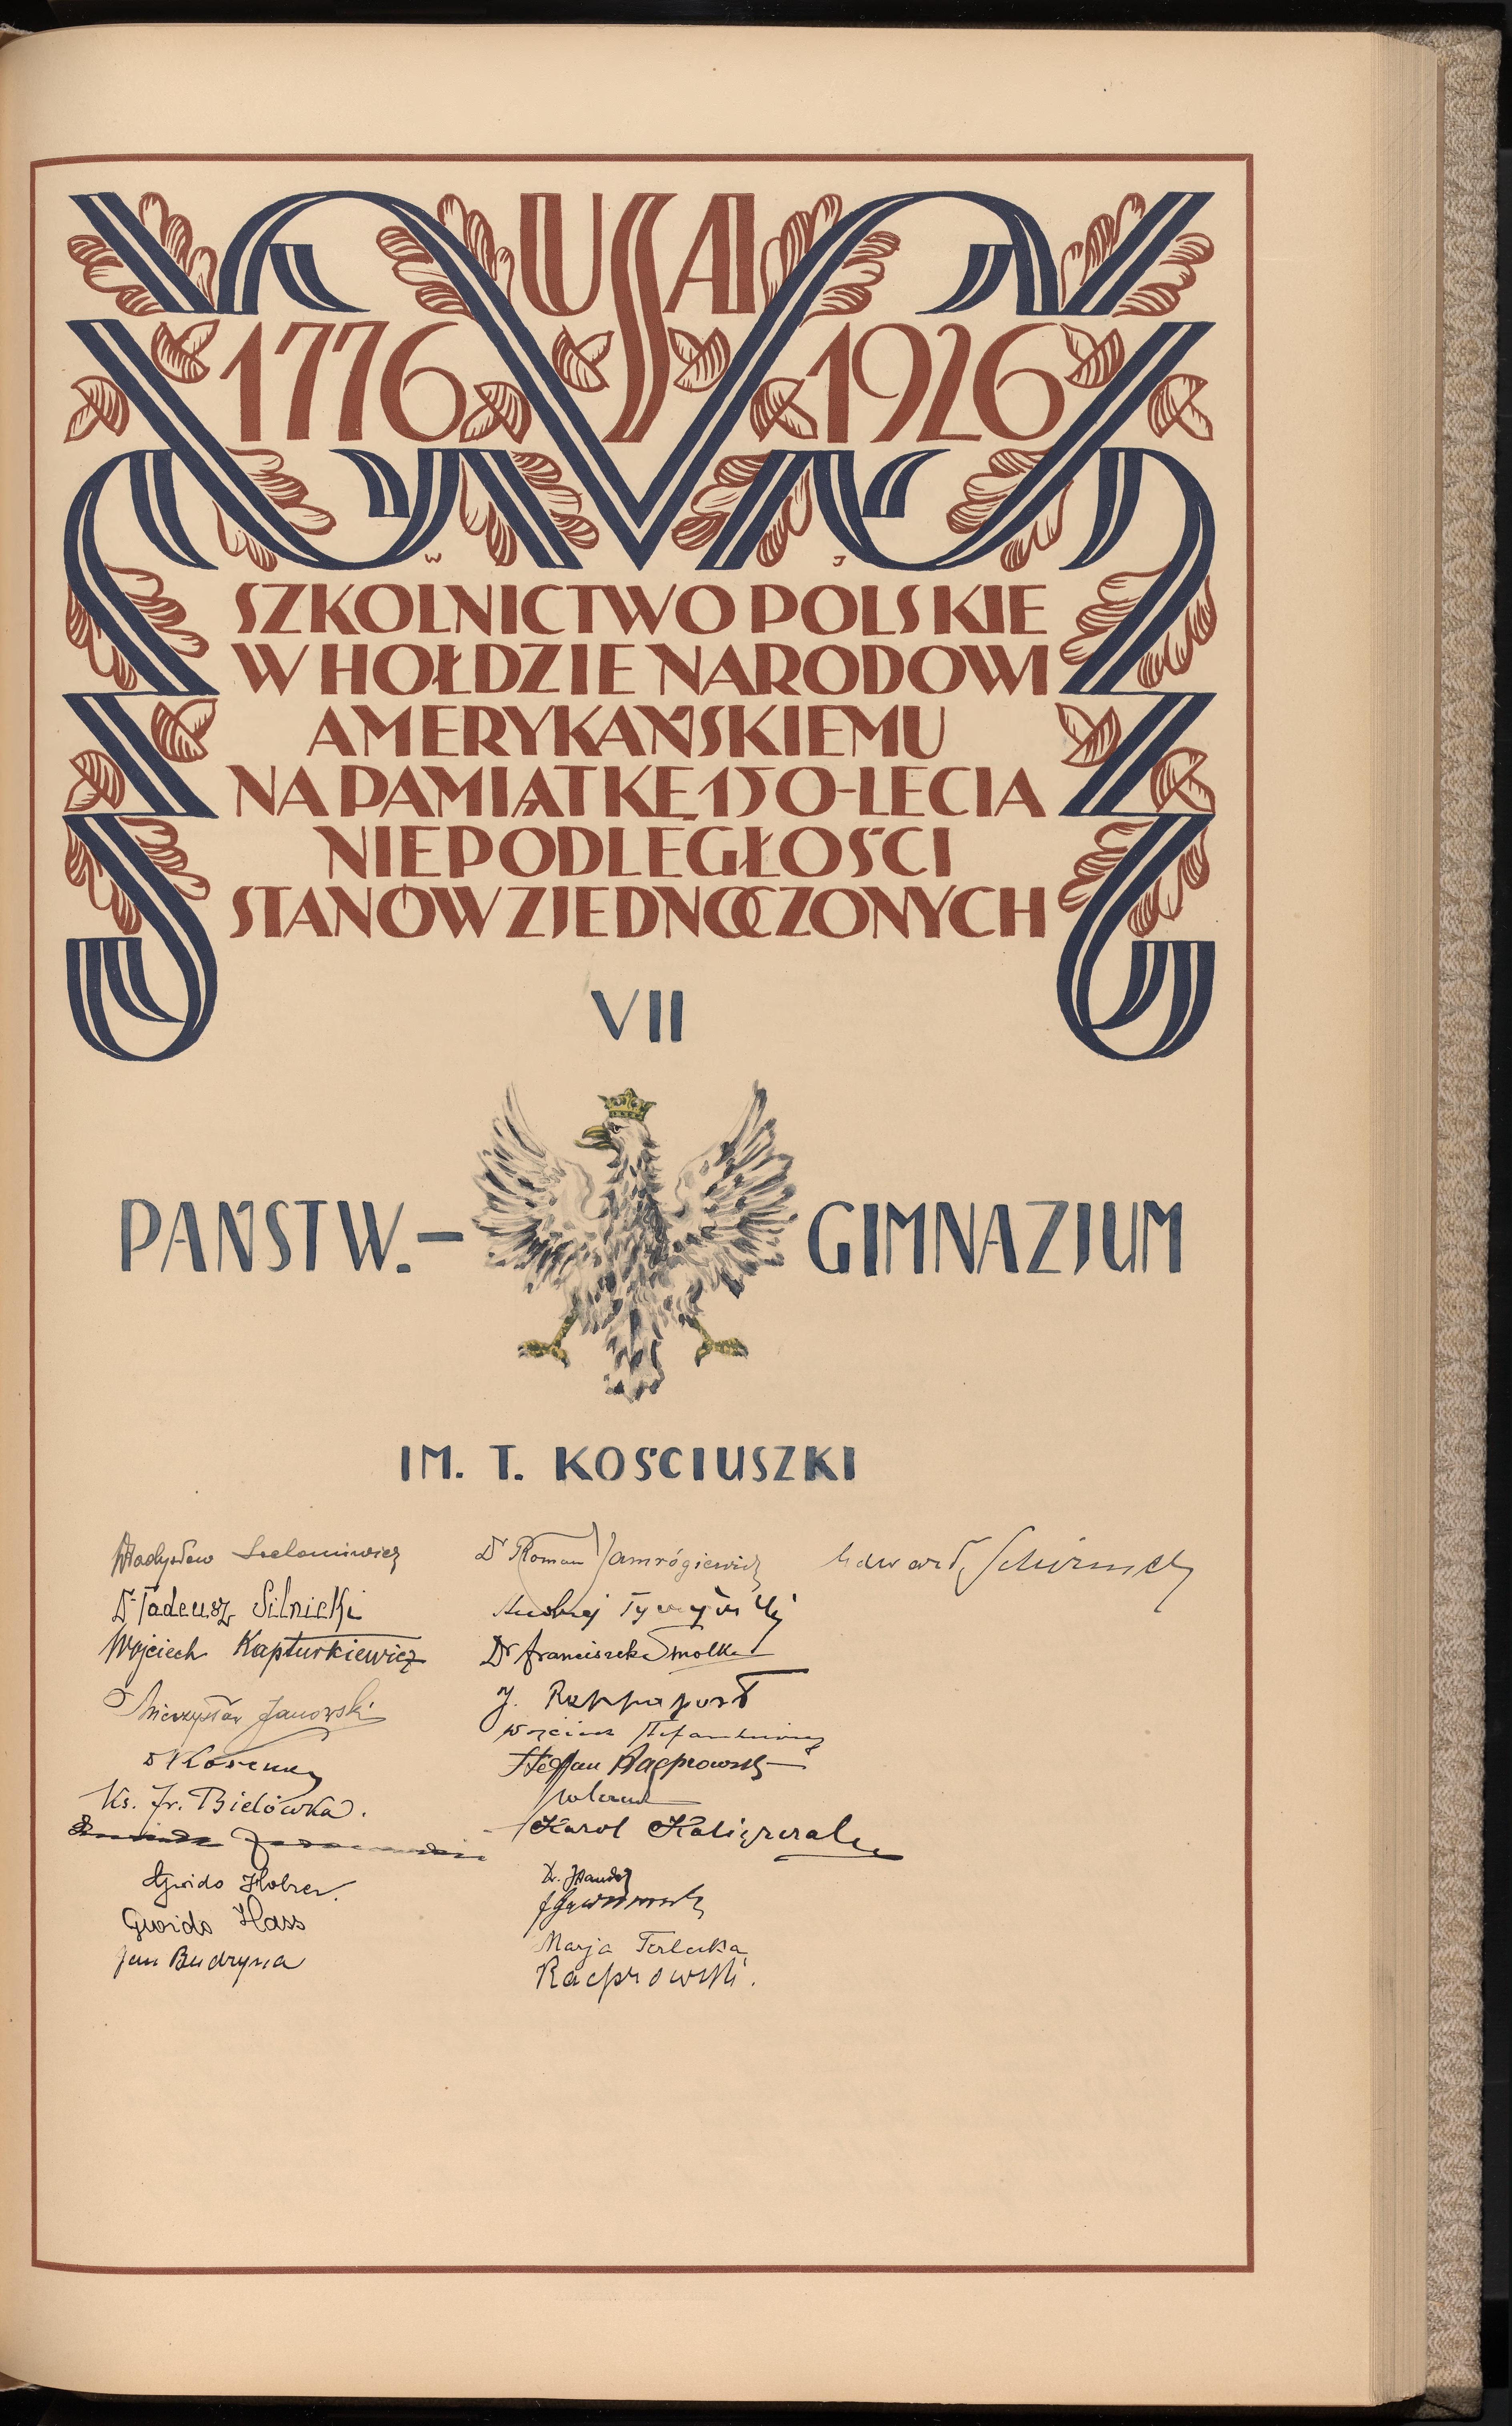 USA
1776 1926
W J
SZKOLNICTWO POLSKIE
W HOŁDZIE NARODOWI
AMERYKAŃSKIEMU
NA PAMIĄTKĘ 150-LECIA
NIEPODLEGŁOŚCI
STANÓW ZJEDNOCZONYCH
VII
PAŃSTW.- GIMNAZJUM
IM. T. KOŚCIUSZKI
Władysław
Dr Tadeusz Silnicki
Wojciech Kapturkiewicz
Mieczysław Janowski
Ks. Fr. Bielówka.
Gwido Holzer.
Gwido Hass
Jan Budzyna
Dr Roman Jamrógiewicz
Andrzej
Dr Franciszek Smolka
J. Rappaport
Wojciech
Stefan
Karol
Dr.
Marja Terlecka
Kacprowski.
Edward